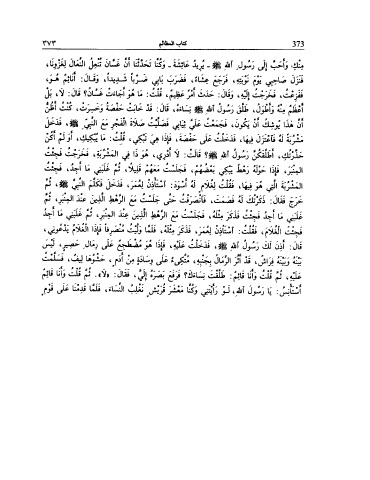 373 كتاب المظالم ٣٧٣
مِنْكِ وَأَحَبَّ إِلَى رَسُولِ اللهِ ﷺ - يُرِيدُ عَائِشَةَ - وَكُنَّا تَحَدَّثْنَا أَنَّ غَسَّانَ تُنْعِلُ النِّعَالَ لِغَزْوِنَا،
فَنَزَلَ صَاحِبِي يَوْمَ نَوْبَتِهِ، فَرَجَعَ عِشَاءً، فَضَرَبَ بَابِي ضَرْبًا شَدِيدًا، وَقَالَ: أَنَائِمٌ هُوَ،
فَفَزِعْتُ، فَخَرَجْتُ إِلَيْهِ، وَقَالَ: حَدَثَ أَمْرٌ عَظِيمٌ، قُلْتُ: مَا هُوَ أَجَاءَتْ غَسَّانُ؟ قَالَ: لَا، بَلْ
أَعْظَمُ مِنْهُ وَأَطْوَلُ، طَلَّقَ رَسُولُ اللهِ ﷺ نِسَاءَهُ، قَالَ: قَدْ خَابَتْ حَفْصَةُ وَخَسِرَتْ، كُنْتُ أَظُنُّ
أَنَّ هَذَا يُوشِكُ أَنْ يَكُونَ، فَجَمَعْتُ عَلَيَّ ثِيَابِي، فَصَلَّيْتُ صَلَاةَ الْفَجْرِ مَعَ النَّبِيِّ ﷺ، فَدَخَلَ
مَشْرُبَةً لَهُ فَاعْتَزَلَ فِيهَا، فَدَخَلْتُ عَلَى حَفْصَةَ، فَإِذَا هِيَ تَبْكِي، قُلْتُ: مَا يُبْكِيكِ، أَوَ لَمْ أَكُنْ
حَذَّرْتُكِ، أَطَلَّقَكُنَّ رَسُولُ اللهِ ﷺ؟ قَالَتْ: لَا أَدْرِي، هُوَ ذَا فِي الْمَشْرُبَةِ، فَخَرَجْتُ فَجِئْتُ
الْمِنْبَرَ، فَإِذَا حَوْلَهُ رَهْطٌ يَبْكِي بَعْضُهُمْ، فَجَلَسْتُ مَعَهُمْ قَلِيلًا، ثُمَّ غَلَبَنِي مَا أَجِدُ، فَجِئْتُ
الْمَشْرُبَةَ الَّتِي هُوَ فِيهَا، فَقُلْتُ لِغُلَامٍ لَهُ أَسْوَدَ: اسْتَأْذِنْ لِعُمَرَ، فَدَخَلَ فَكَلَّمَ النَّبِيَّ ﷺ، ثُمَّ
خَرَجَ فَقَالَ: ذَكَرْتُكَ لَهُ فَصَمَتَ، فَانْصَرَفْتُ حَتَّى جَلَسْتُ مَعَ الرَّهْطِ الَّذِينَ عِنْدَ الْمِنْبَرِ، ثُمَّ
غَلَبَنِي مَا أَجِدُ فَجِئْتُ فَذَكَرَ مِثْلَهُ، فَجَلَسْتُ مَعَ الرَّهْطِ الَّذِينَ عِنْدَ الْمِنْبَرِ، ثُمَّ غَلَبَنِي مَا أَجِدُ
فَجِئْتُ الْغُلَامَ، فَقُلْتُ: اسْتَأْذِنْ لِعُمَرَ، فَذَكَرَ مِثْلَهُ، فَلَمَّا وَلَّيْتُ مُنْصَرِفًا فَإِذَا الْغُلَامُ يَدْعُونِي،
قَالَ: أَذِنَ لَكَ رَسُولُ اللهِ ﷺ، فَدَخَلْتُ عَلَيْهِ، فَإِذَا هُوَ مُضْطَجِعٌ عَلَى رِمَالِ حَصِيرٍ، لَيْسَ
بَيْنَهُ وَبَيْنَهُ فِرَاشٌ، قَدْ أَثَّرَ الرِّمَالُ بِجَنْبِهِ، مُتَّكِئٌ عَلَى وِسَادَةٍ مِنْ أَدَمٍ، حَشْوُهَا لِيفٌ، فَسَلَّمْتُ
عَلَيْهِ، ثُمَّ قُلْتُ وَأَنَا قَائِمٌ: طَلَّقْتَ نِسَاءَكَ؟ فَرَفَعَ بَصَرَهُ إِلَيَّ، فَقَالَ: «لَا». ثُمَّ قُلْتُ وَأَنَا قَائِمٌ
أَسْتَأْنِسُ: يَا رَسُولَ اللهِ، لَوْ رَأَيْتَنِي وَكُنَّا مَعْشَرَ قُرَيْشٍ نَغْلِبُ النِّسَاءَ، فَلَمَّا قَدِمْنَا عَلَى قَوْمٍ